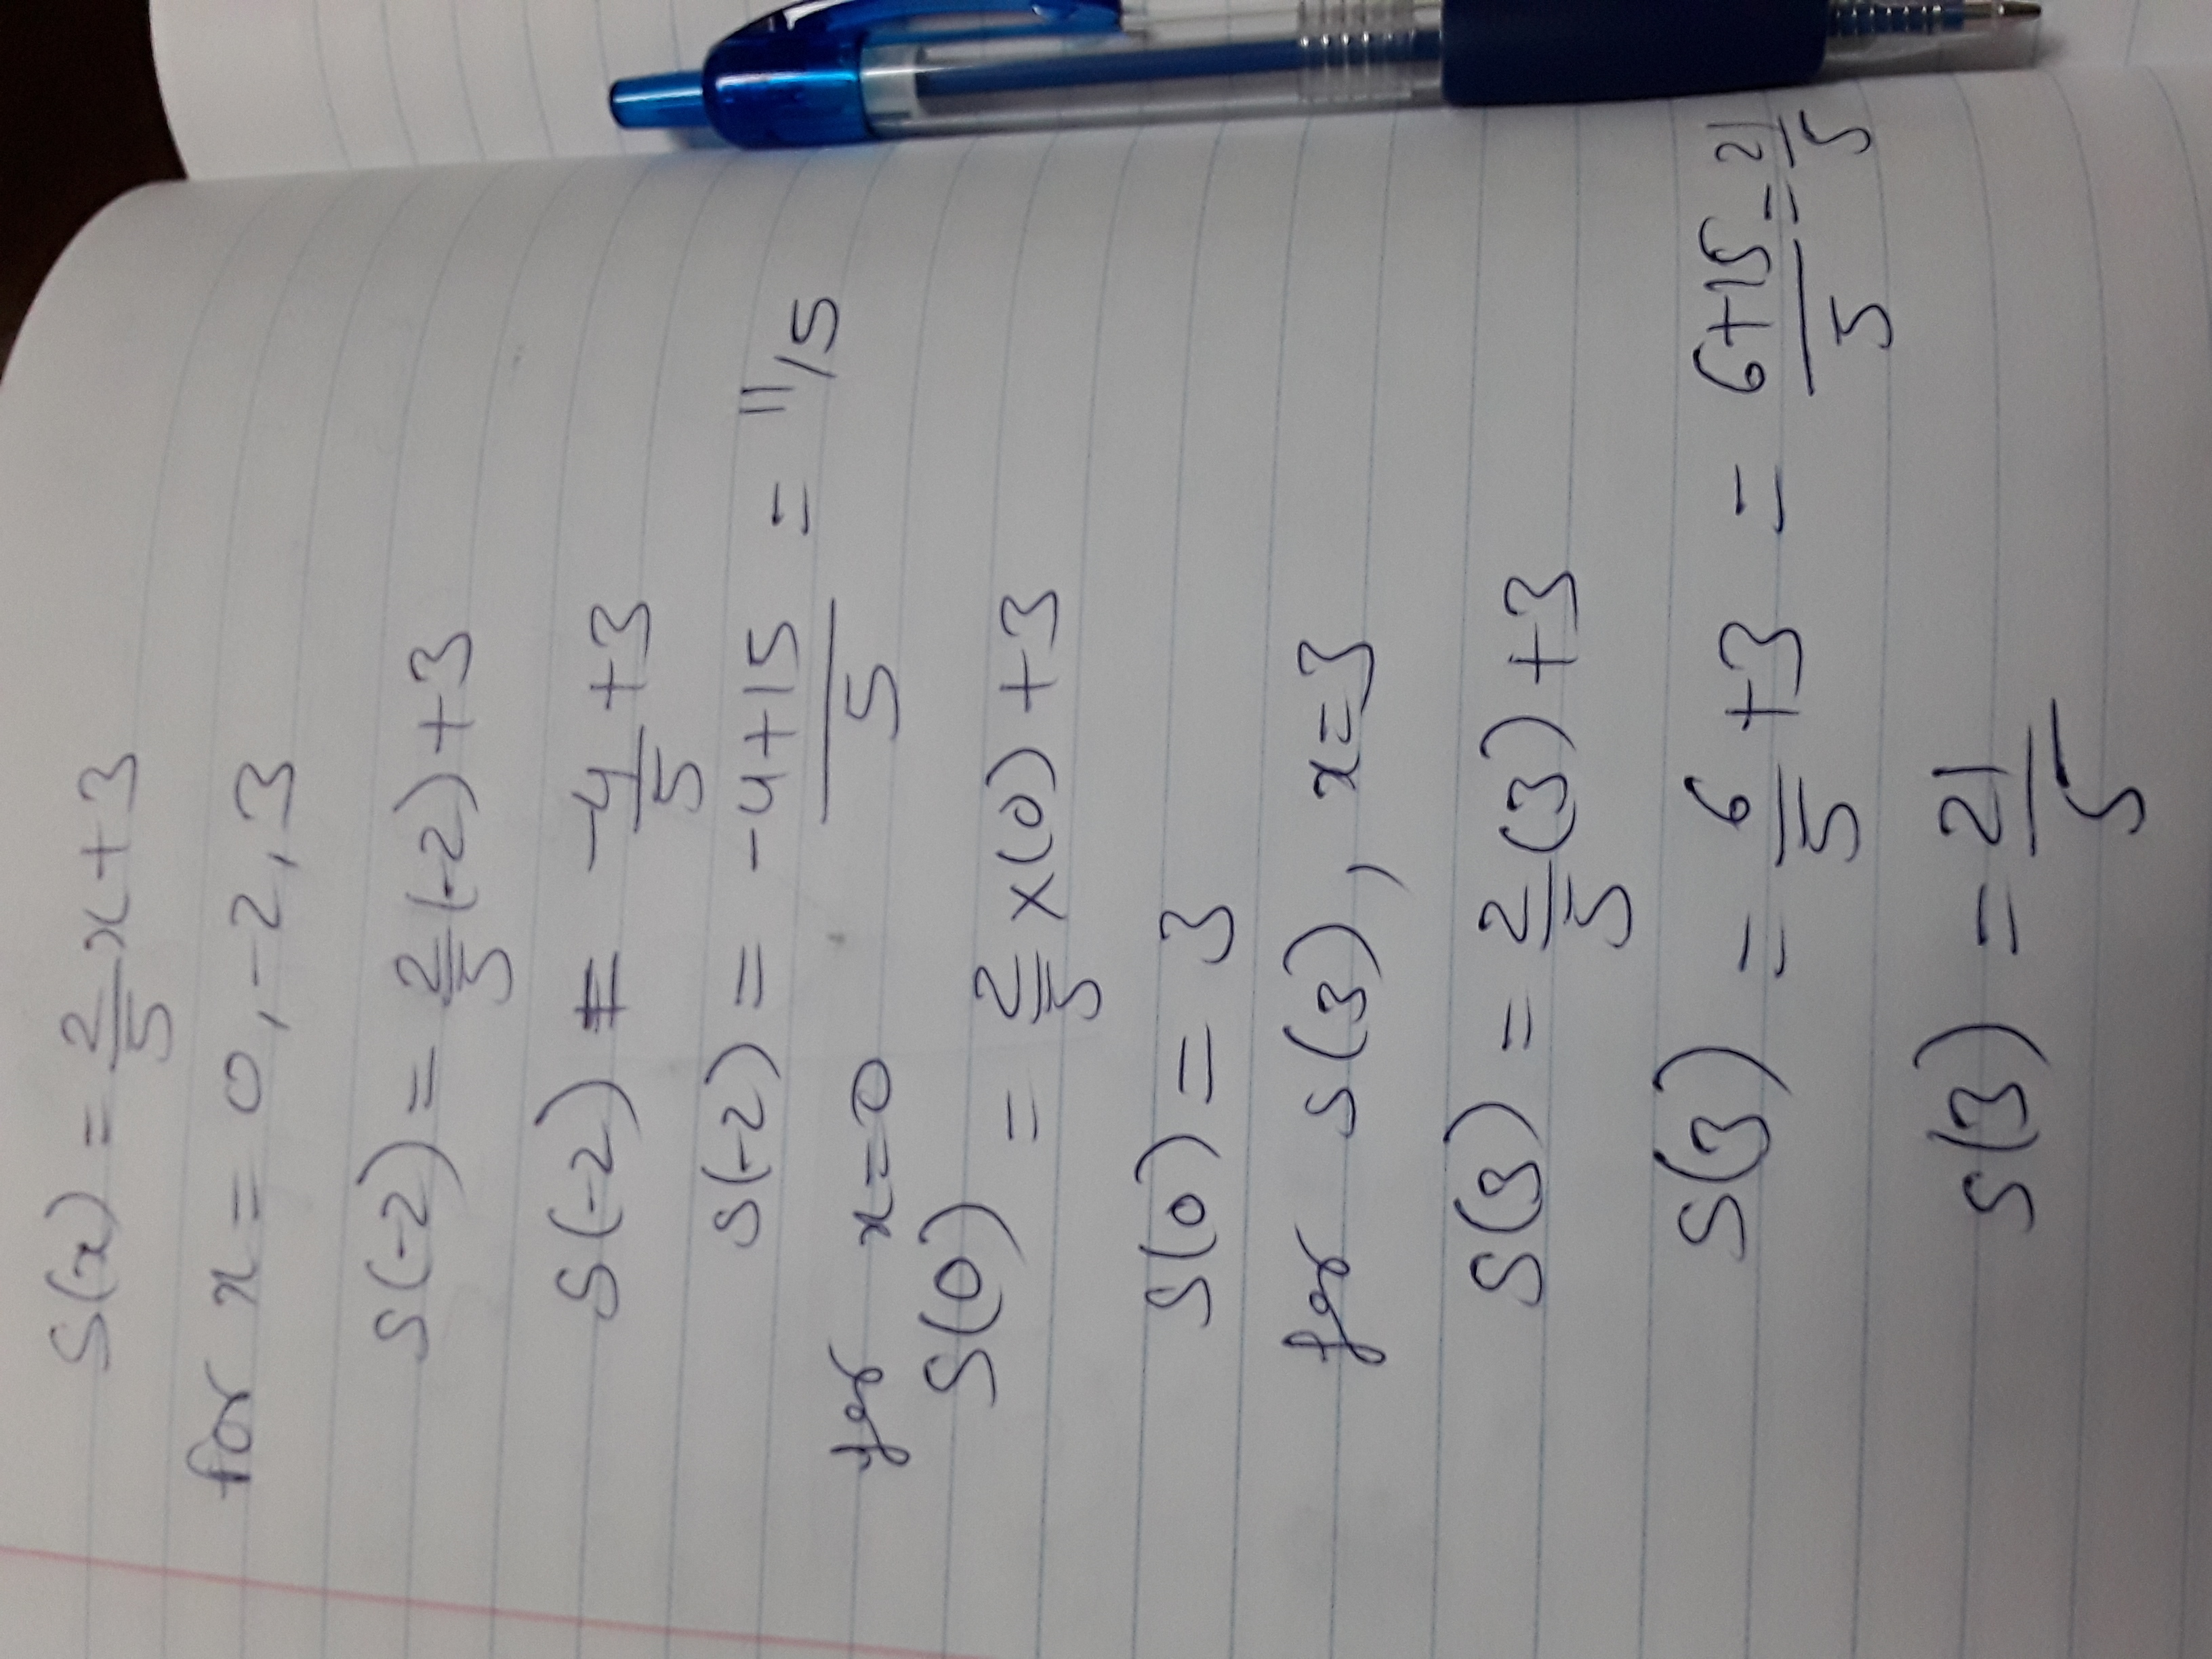 S(x) = 2/5 x + 3
for x = 0, -2, 3
S(-2) = 2/5 (-2) + 3
S(-2) = -4/5 + 3
S(-2) = -4+15/5 = 11/5
for x=0
S(0) = 2/5 x(0) + 3
S(0) = 3
for S(3), x=3
S(3) = 2/5 (3) + 3
S(3) = 6/5 + 3 = 6+15/5 = 21/5
S(3) = 21/5